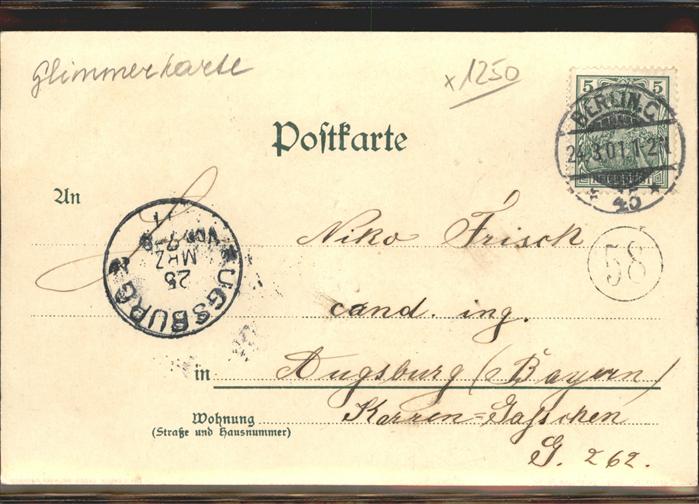 Glimmerkarte
x1250
5 5
BERLIN.C.
24.3.01.1-2N.
* 45 *
Poſtkarte
An
Niko Frisch
58
AUGSBURG
25
MRZ
7-8
VOR
cand ing.
in Augsburg (Bayern)
Wohnung
(Straße und Hausnummer)
Karren=Gäſschen
G. 262.